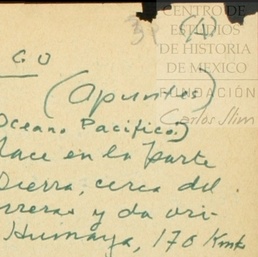 CENTRO DE
ESTUDIOS
DE HISTORIA
DE MEXICO
FUNDACIÓN
Carlos Slim
3 (4)
GO
(apuntes)
Oceano Pacifico.)
nace en la parte
Sierra, cerca del
rreras y da ori-
Humaya, 170 Kmts